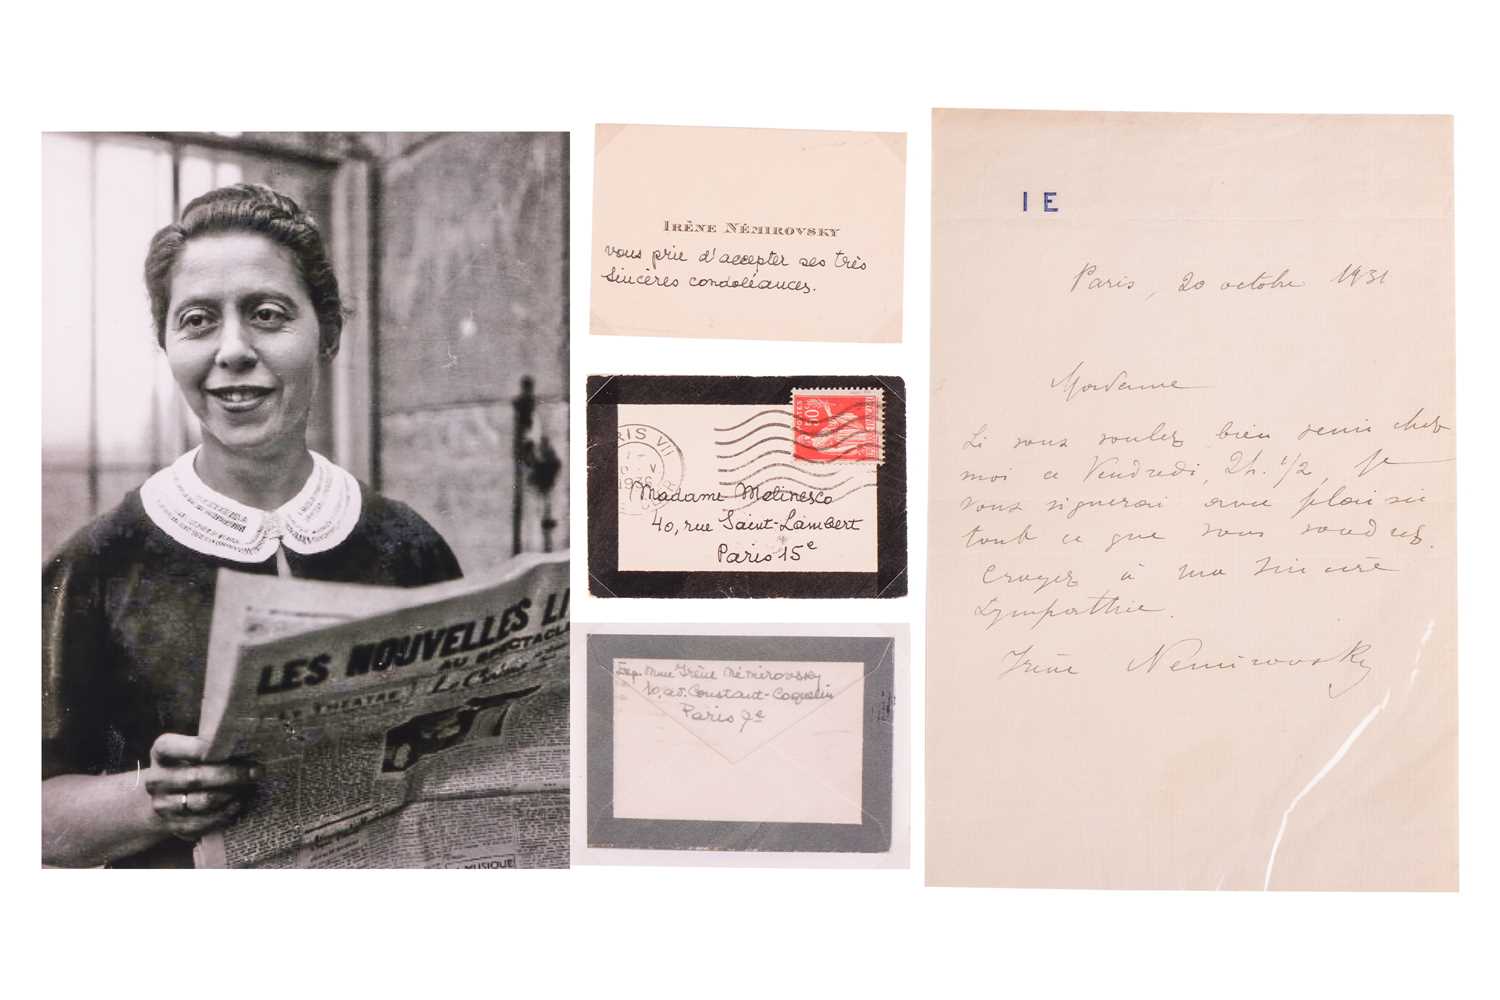 LES NOUVELLES LI
AU SPECTACLE
LE THÉATRE
MUSIQUE
IRÈNE NÉMIROVSKY
vous prie d'accepter ses très
sincères condoléances.
POSTES
50c
RIS VII
1936
Madame Molinesco
40, rue Saint-Lambert
Paris 15e
Exp. Mme Irène Némirovsky
10, av. Constant-Coquelin
Paris 7e
I E
Paris, 20 octobre 1931
Madame
Si vous voulez bien venir chez
moi ce Vendredi, 2h. 1/2, je
vous signerai avec plaisir
tout ce que vous voudrez.
Croyez à ma sincère
sympathie.
Irène Nemirovsky